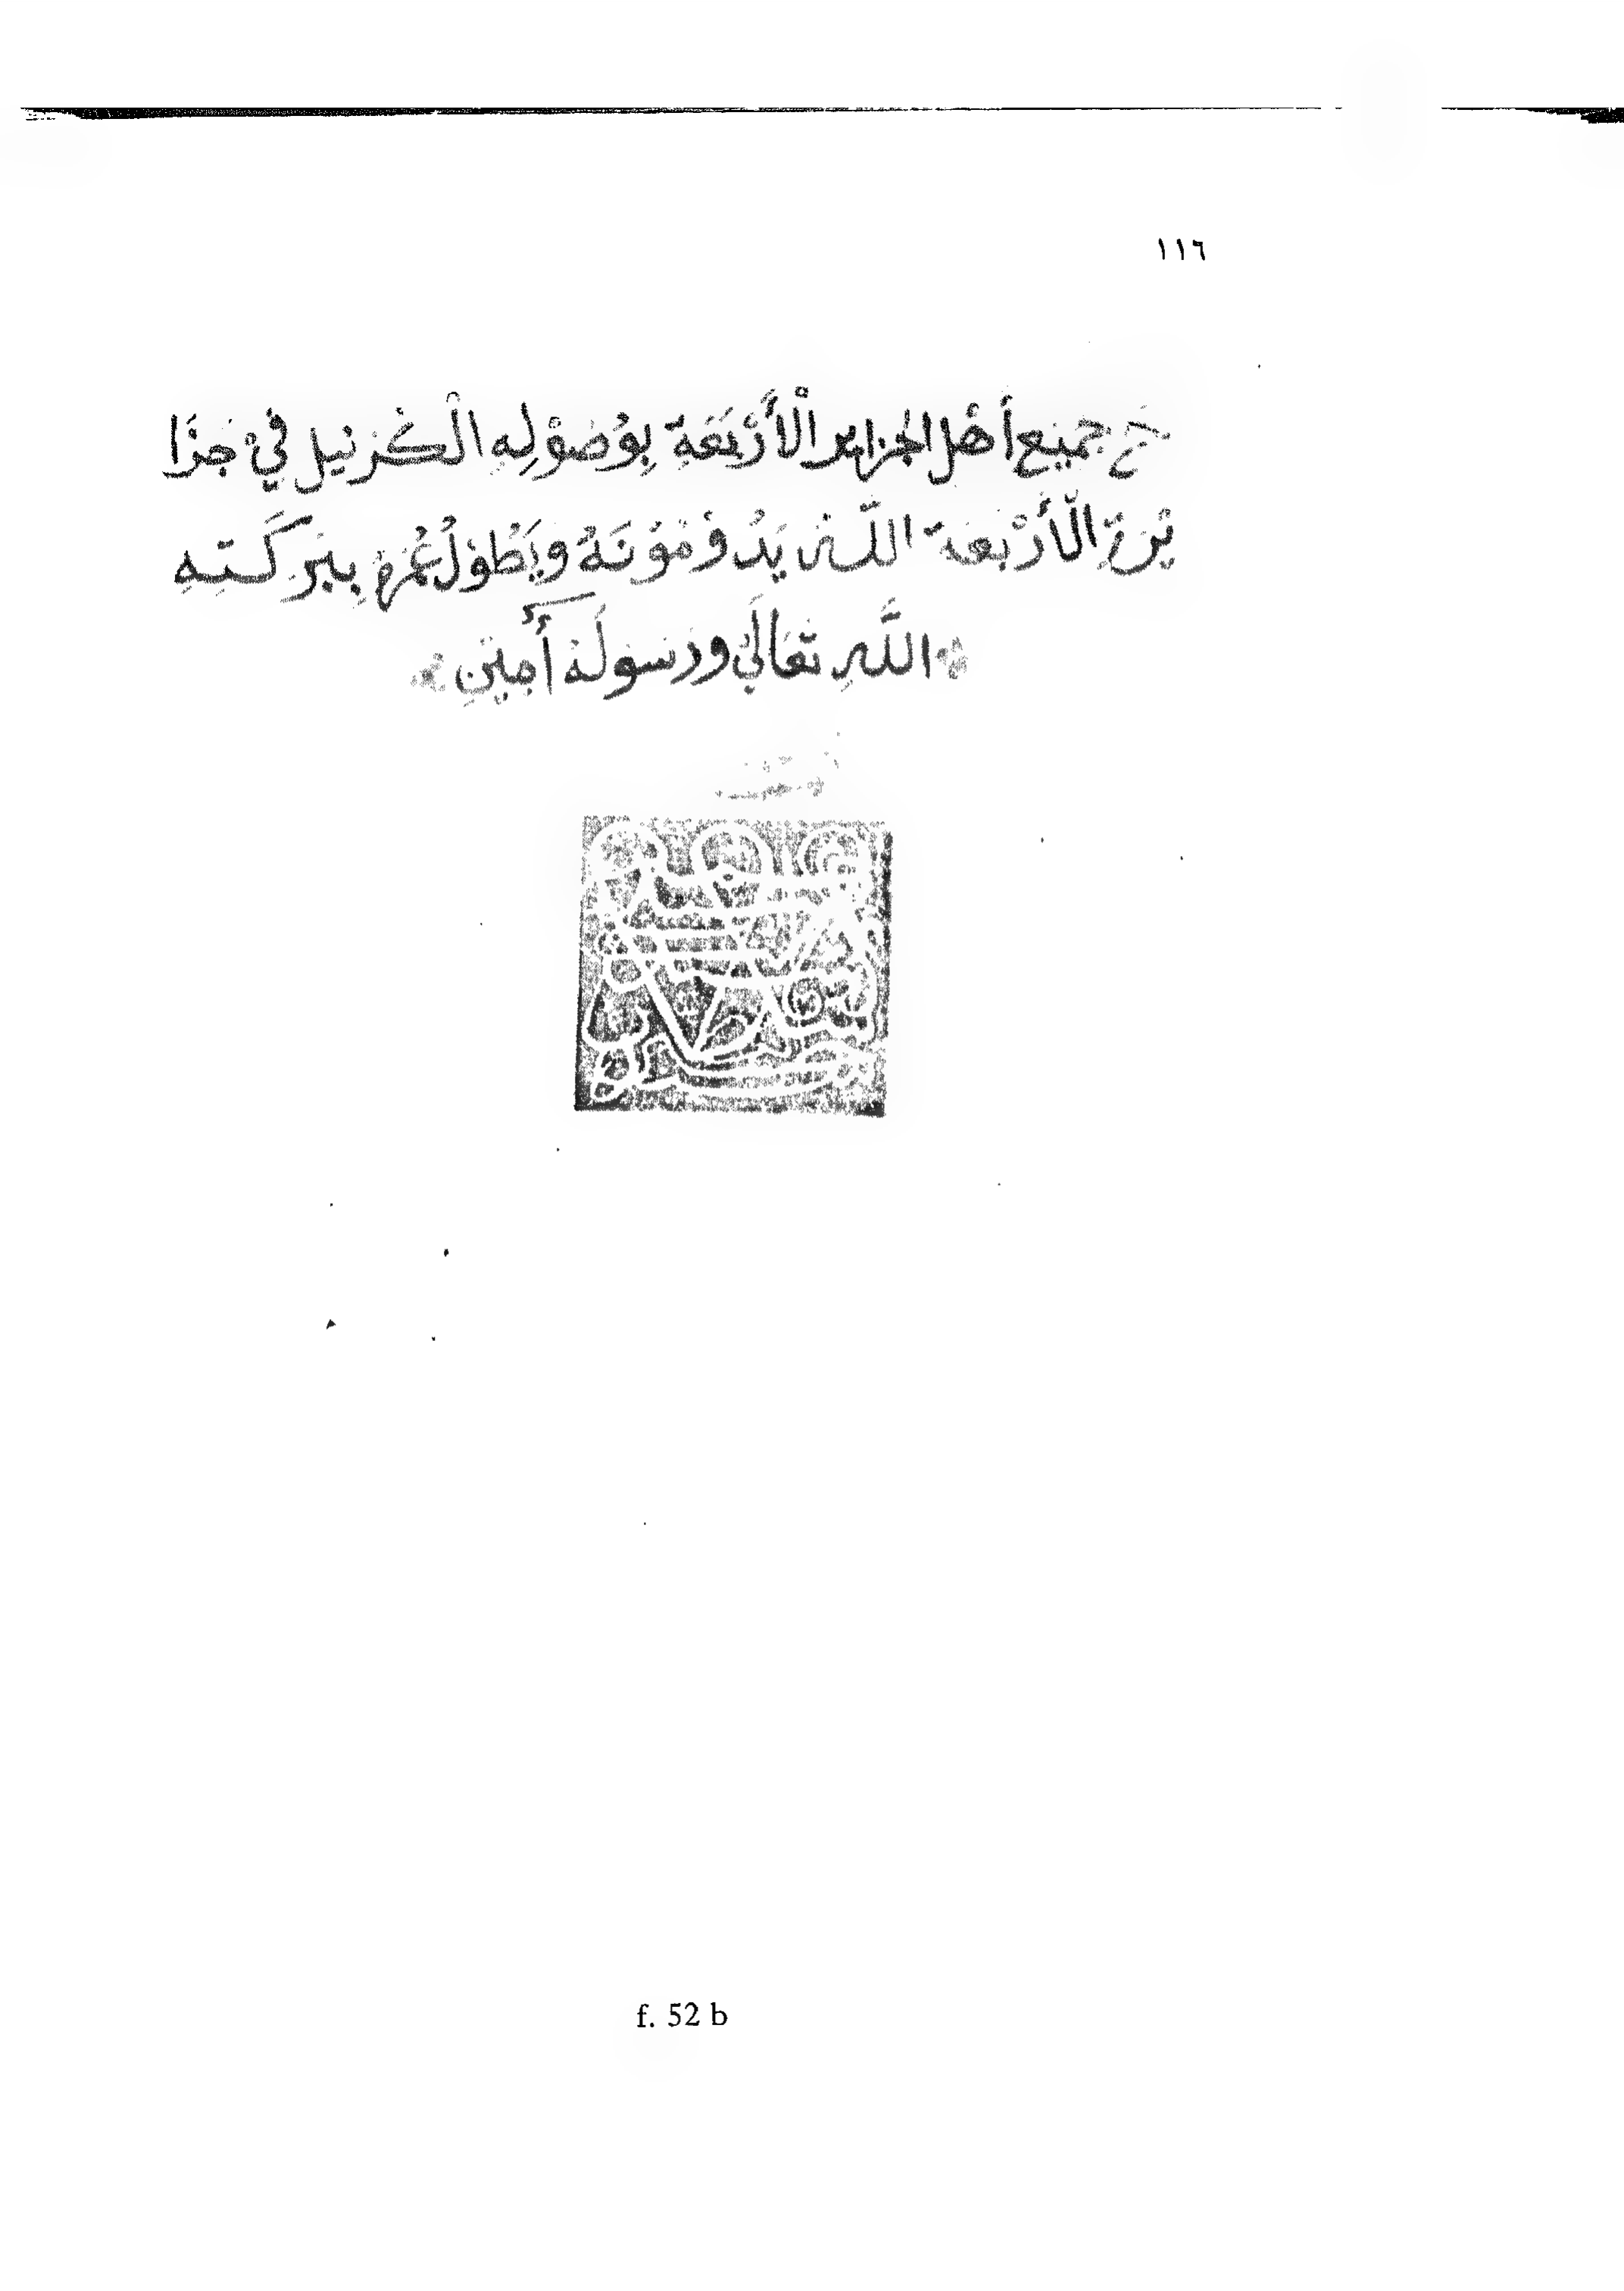 ١١٦
جَمِيْع أَهْل الجزاير الْأَرْبَعَةِ بِوُصُوْلِهِ الْكَرْنِيل فِيْ جَزَا
يْرَةِ الْأَرْبَعَة اللّه يَدُوْمُوْنَهُ وَيَطُوْلُ عُمْرهُ بِبَرَكَتِهِ
اللَّهِ تَعَالَىْ وَرَسُولَهُ أَمِيْنِ
f. 52 b